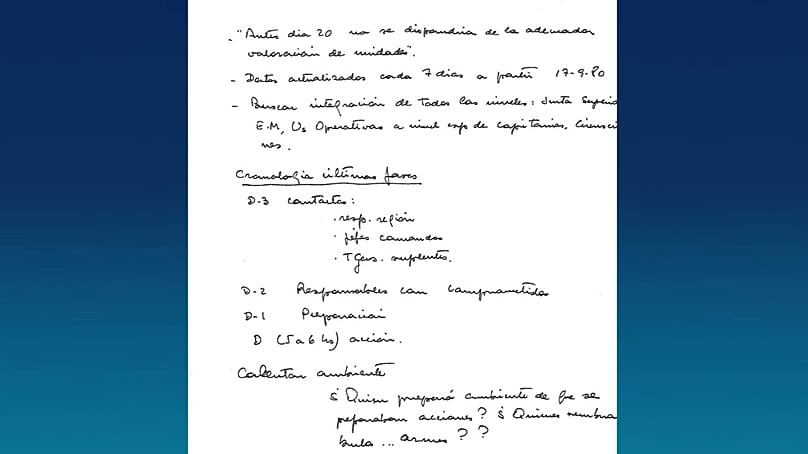 - "Antes dia 20 no se dispondria de la adecuada
valoración de unidades".
- Datos actualizados cada 7 dias a partir 17-9-80
- Buscar integración de todos los niveles: Junta Superio
E.M, Us Operativas a nivel esp de capitanias. Circunsci
nes.
Cronologia últimas fases
D-3 contactos:
· resp. región
· jefes comandos
· TGens. suplentes.
D-2 Responsables con comprometidos
D-1 Preparación
D (5 a 6 hs) acción.
Calentar ambiente
¿Quien preparó ambiente de que se
preparaban acciones? ¿Quienes nembra
bula ... armes??